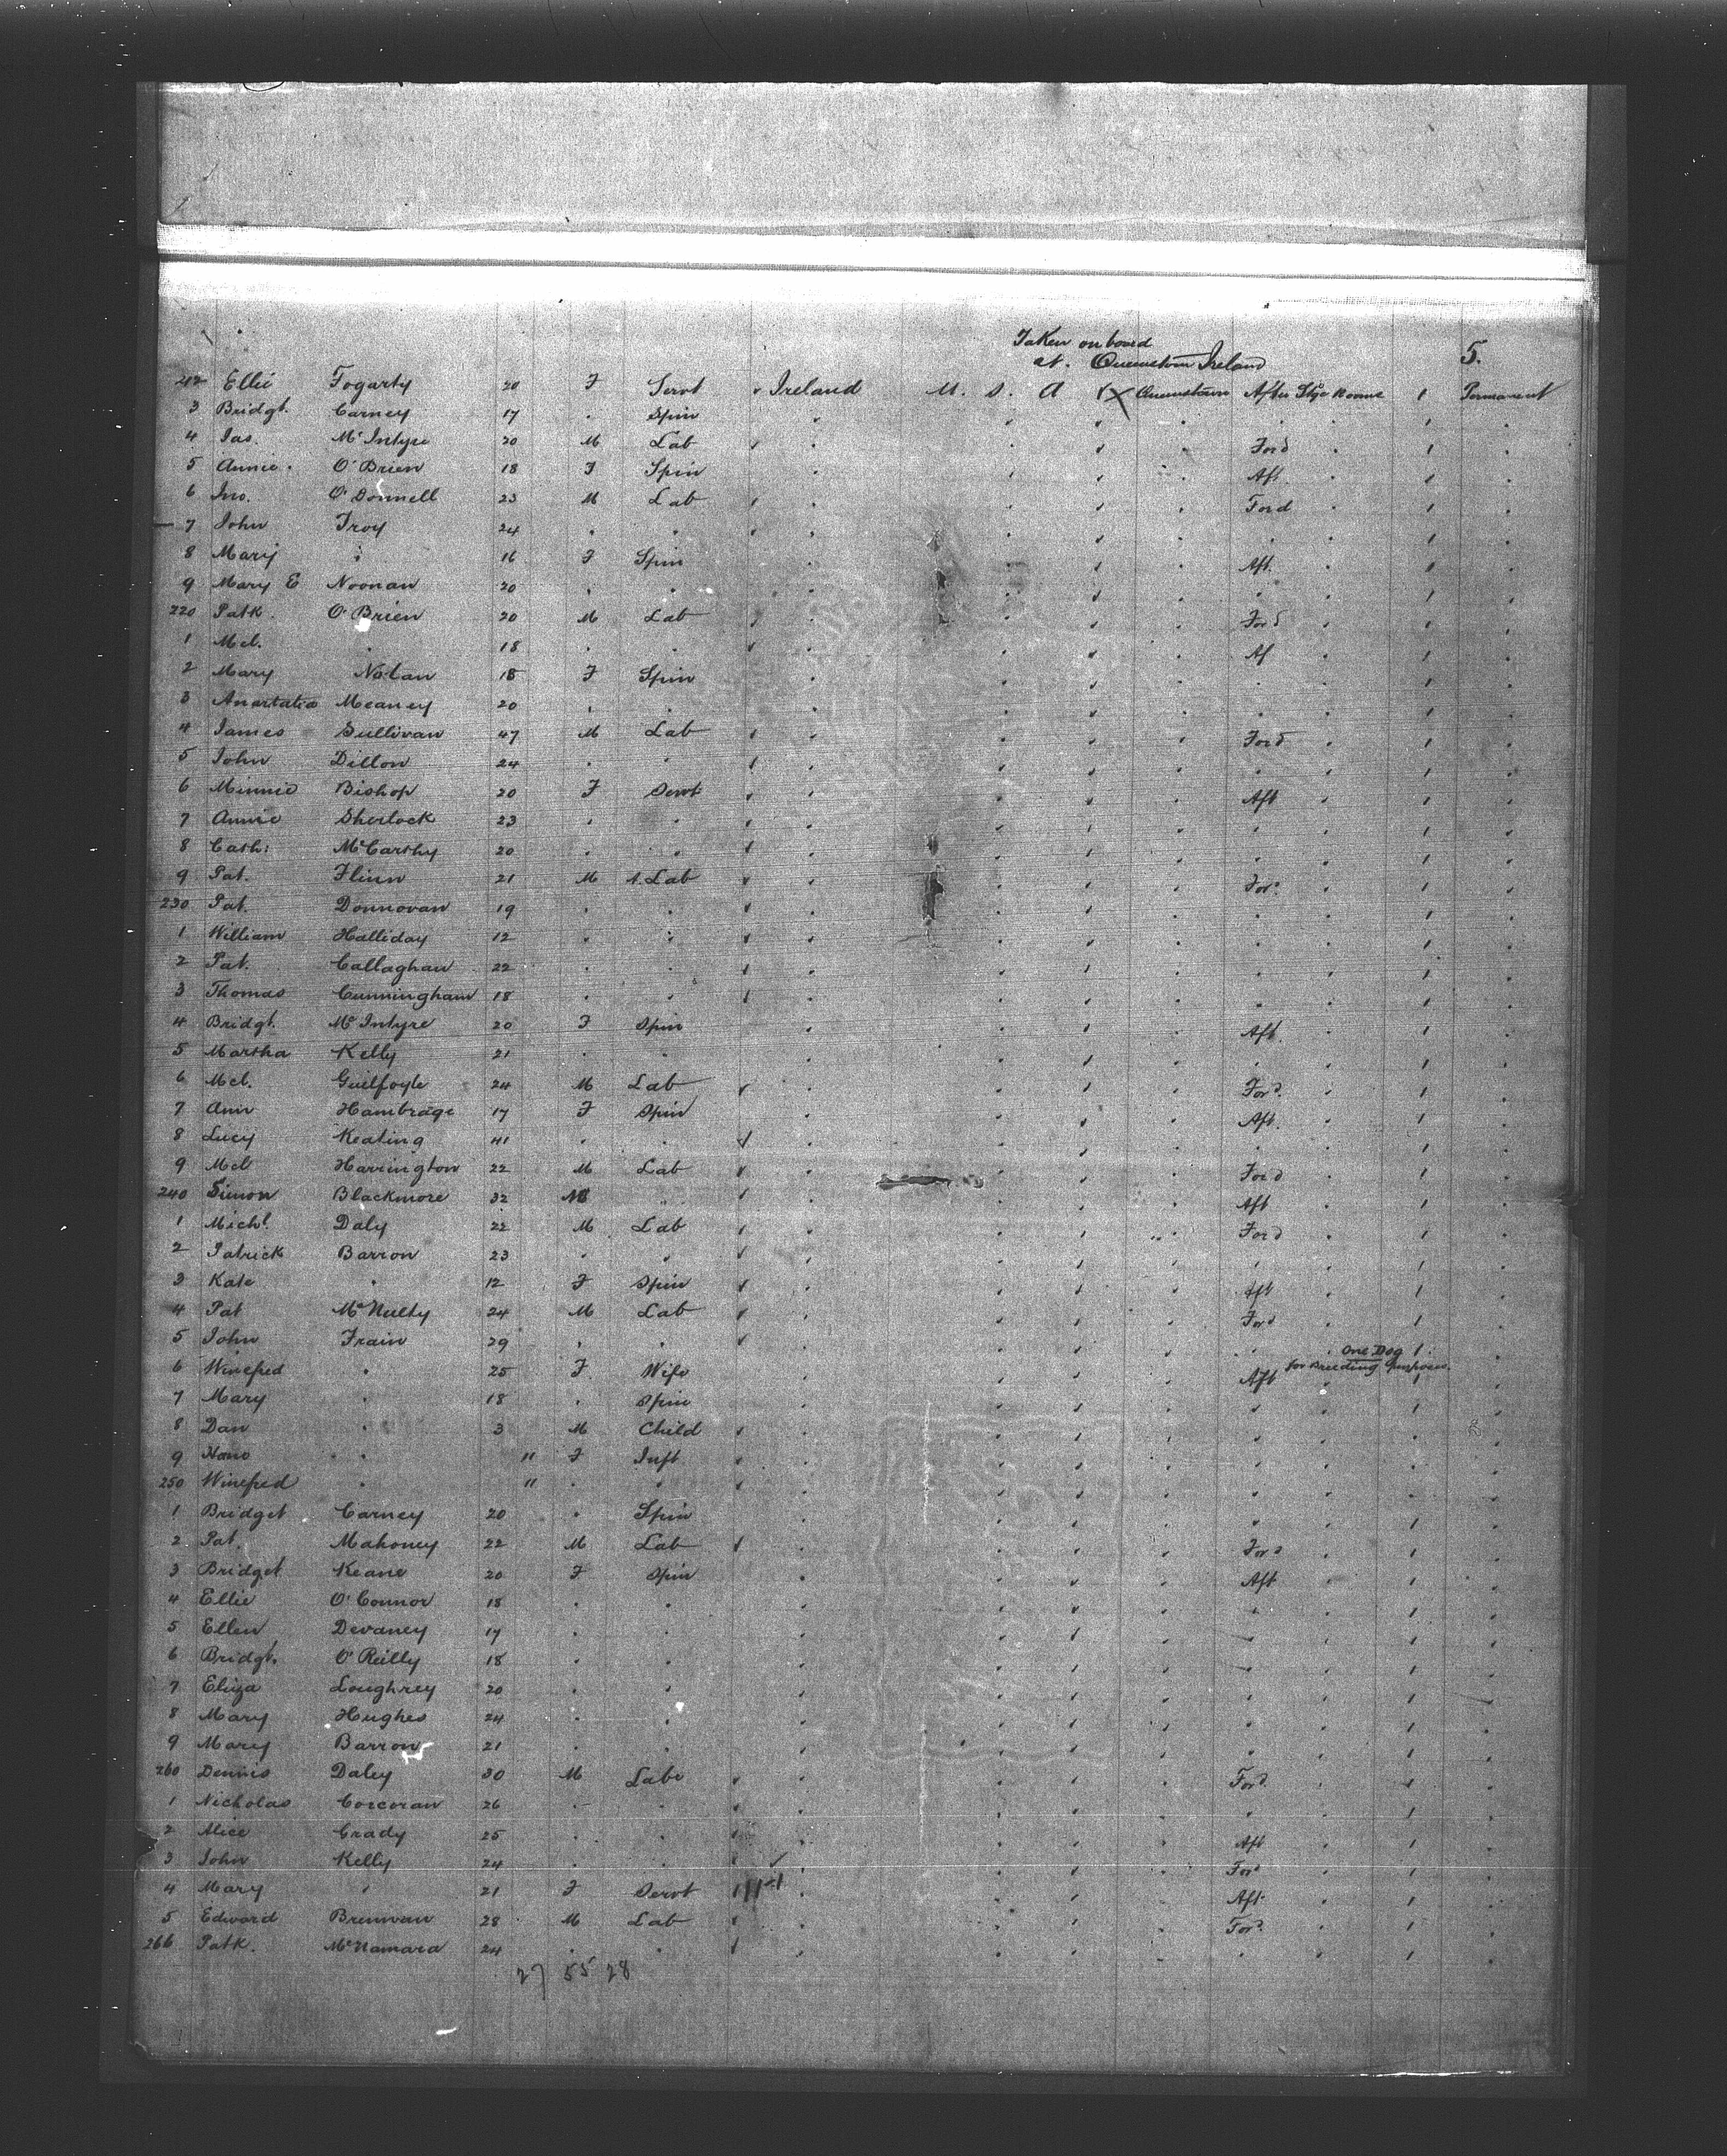 Taken on board
at. Queenstown Ireland 5.
212 Ellie Fogarty 20 F Servt Ireland U. S. A Queenstown After Stge Rooms 1 Permanent
3 Bridgt. Carney 17 " Spin
4 Jas. McIntyre 20 M Lab Ford
5 Annie O'Brien 18 F Spin Aft
6 Jno. O'Donnell 23 M Lab Ford
7 John Troy 24 " "
8 Mary " 16 F Spin Aft.
9 Mary E Noonan 20 " "
220 Patk. O'Brien 20 M Lab Ford
1 Mcl. " 18 " " Af
2 Mary Nolan 18 F Spin
3 Anartatia Meaney 20 " "
4 James Sullivan 47 M Lab Ford
5 John Dillon 24 " "
6 Minnie Bishop 20 F Servt Aft
7 Annie Sherlock 23 " "
8 Cath: McCarthy 20 " "
9 Pat. Flinn 21 M Lab For.
230 Pat. Donnovan 19 " "
1 William Halliday 12 " "
2 Pat. Callaghan 22 " "
3 Thomas Cunningham 18 " "
4 Bridgt. McIntyre 20 F Spin Aft.
5 Martha Kelly 21 " "
6 Mcl. Guilfoyle 24 M Lab Ford.
7 Ann Hambrage 17 F Spin Aft.
8 Lucy Keating 41 " "
9 Mcl Harrington 22 M Lab Ford
240 Simon Blackmore 32 M " Aft
1 Michl. Daly 22 M Lab Ford
2 Patrick Barron 23 " "
3 Kate " 12 F Spin Aft
4 Pat McNulty 24 M Lab Ford
5 John Frain 29 " " One Dog 1
for Breeding purposes.
6 Winefred " 25 F Wife Aft
7 Mary " 18 " Spin
8 Dan " 3 M Child
9 Nano " " F Inft
250 Winefred " " " "
1 Bridget Carney 20 " Spin
2 Pat. Mahoney 22 M Lab Ford
3 Bridget Keane 20 F Spin Aft
4 Ellie O'Connor 18 " "
5 Ellen Devaney 17 " "
6 Bridgt. O'Reilly 18 " "
7 Eliza Loughrey 20 " "
8 Mary Hughes 24 " "
9 Mary Barron 21 " "
260 Dennis Daley 30 M Labr Ford.
1 Nicholas Corcoran 26 " "
2 Alice Crady 25 " " Aft
3 John Kelly 24 " " Ford
4 Mary " 21 F Servt Aft.
5 Edward Brennan 28 M Lab Ford.
266 Patk. McNamara 24 " "
27 55 28